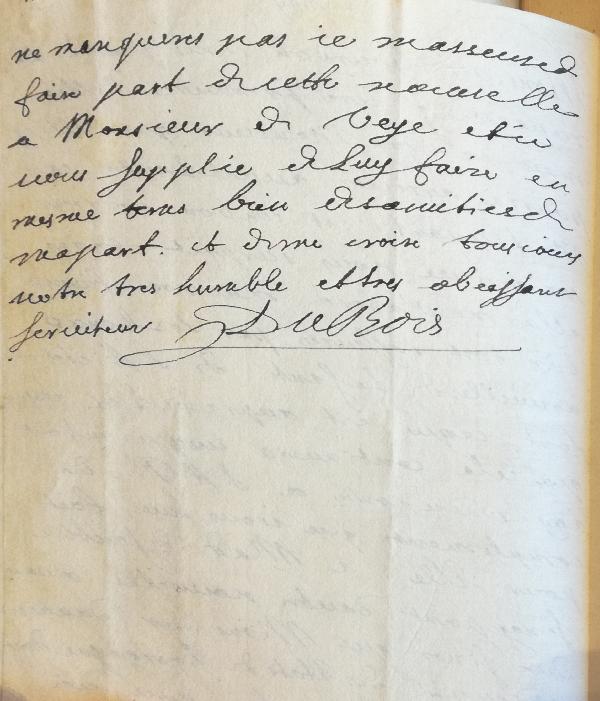 ne manqueres pas ie masseure d
faire part de cette nouuelle
a Monsieur de Veye et ie
vous supplie de luy faire en
mesme tems bien des amities de
ma part. et de me croire tousiours
votre tres humble et tres obeissant
seruiteur DuBois